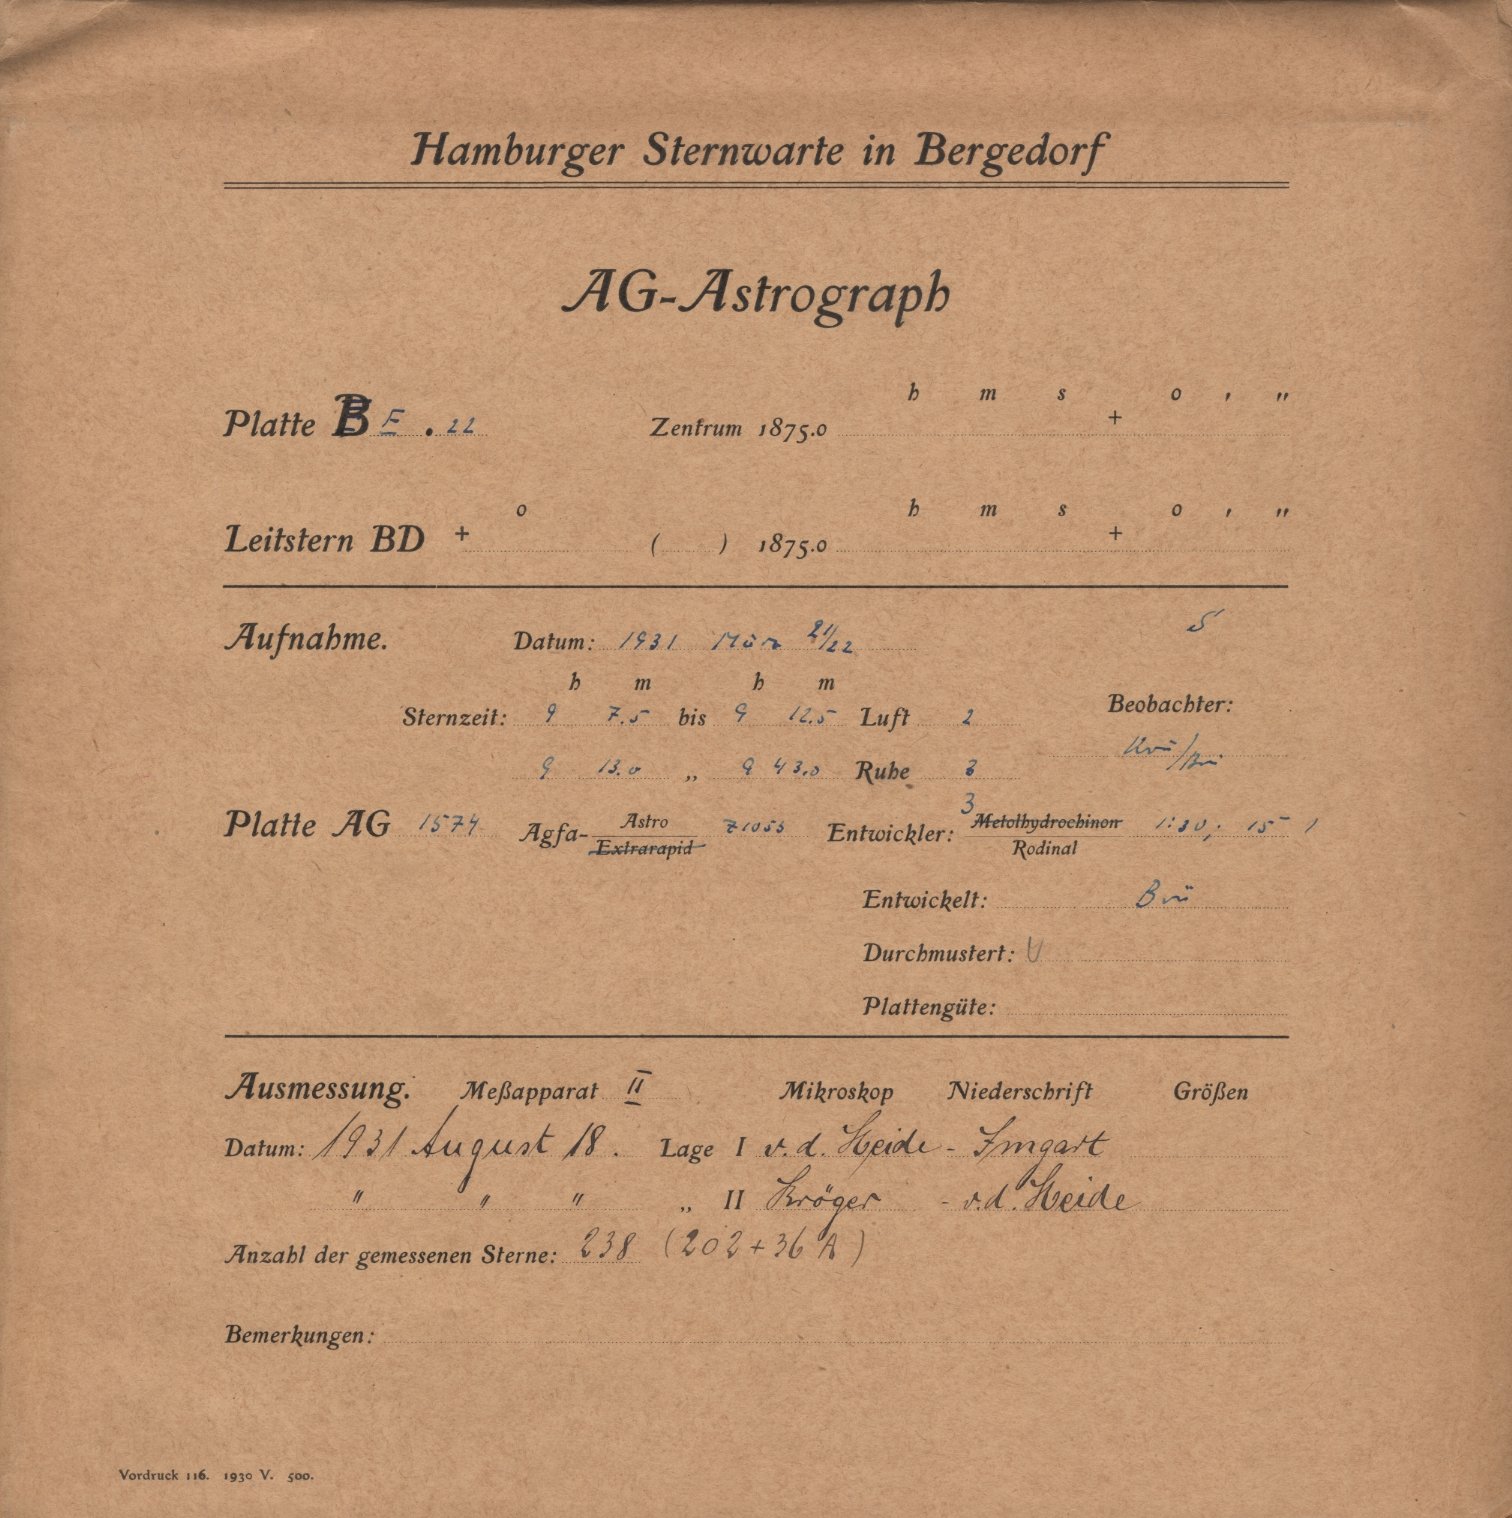 Hamburger Sternwarte in Bergedorf
AG-Astrograph
h m s o ' "
Platte B E . 22 Zentrum 1875.0 +
o h m s o ' "
Leitstern BD + ( ) 1875.0 +
S
Aufnahme. Datum: 1931 März 21/22
h m h m
Sternzeit: 9 7.5 bis 9 12.5 Luft 2 Beobachter:
9 13.0 „ 9 43.0 Ruhe 3
Platte AG 1574 Agfa- Astro Extrarapid Z1055 Entwickler: 3 Metolhydrochinon Rodinal 1:30; 15
Entwickelt: Brü
Durchmustert:
Plattengüte:
Ausmessung. Meßapparat II Mikroskop Niederschrift Größen
Datum: 1931 August 18. Lage I v. d. Heide - Imgart
" " " „ II Kröger - v.d. Heide
Anzahl der gemessenen Sterne: 238 (202 + 36 A)
Bemerkungen:
Vordruck 116. 1930 V. 500.